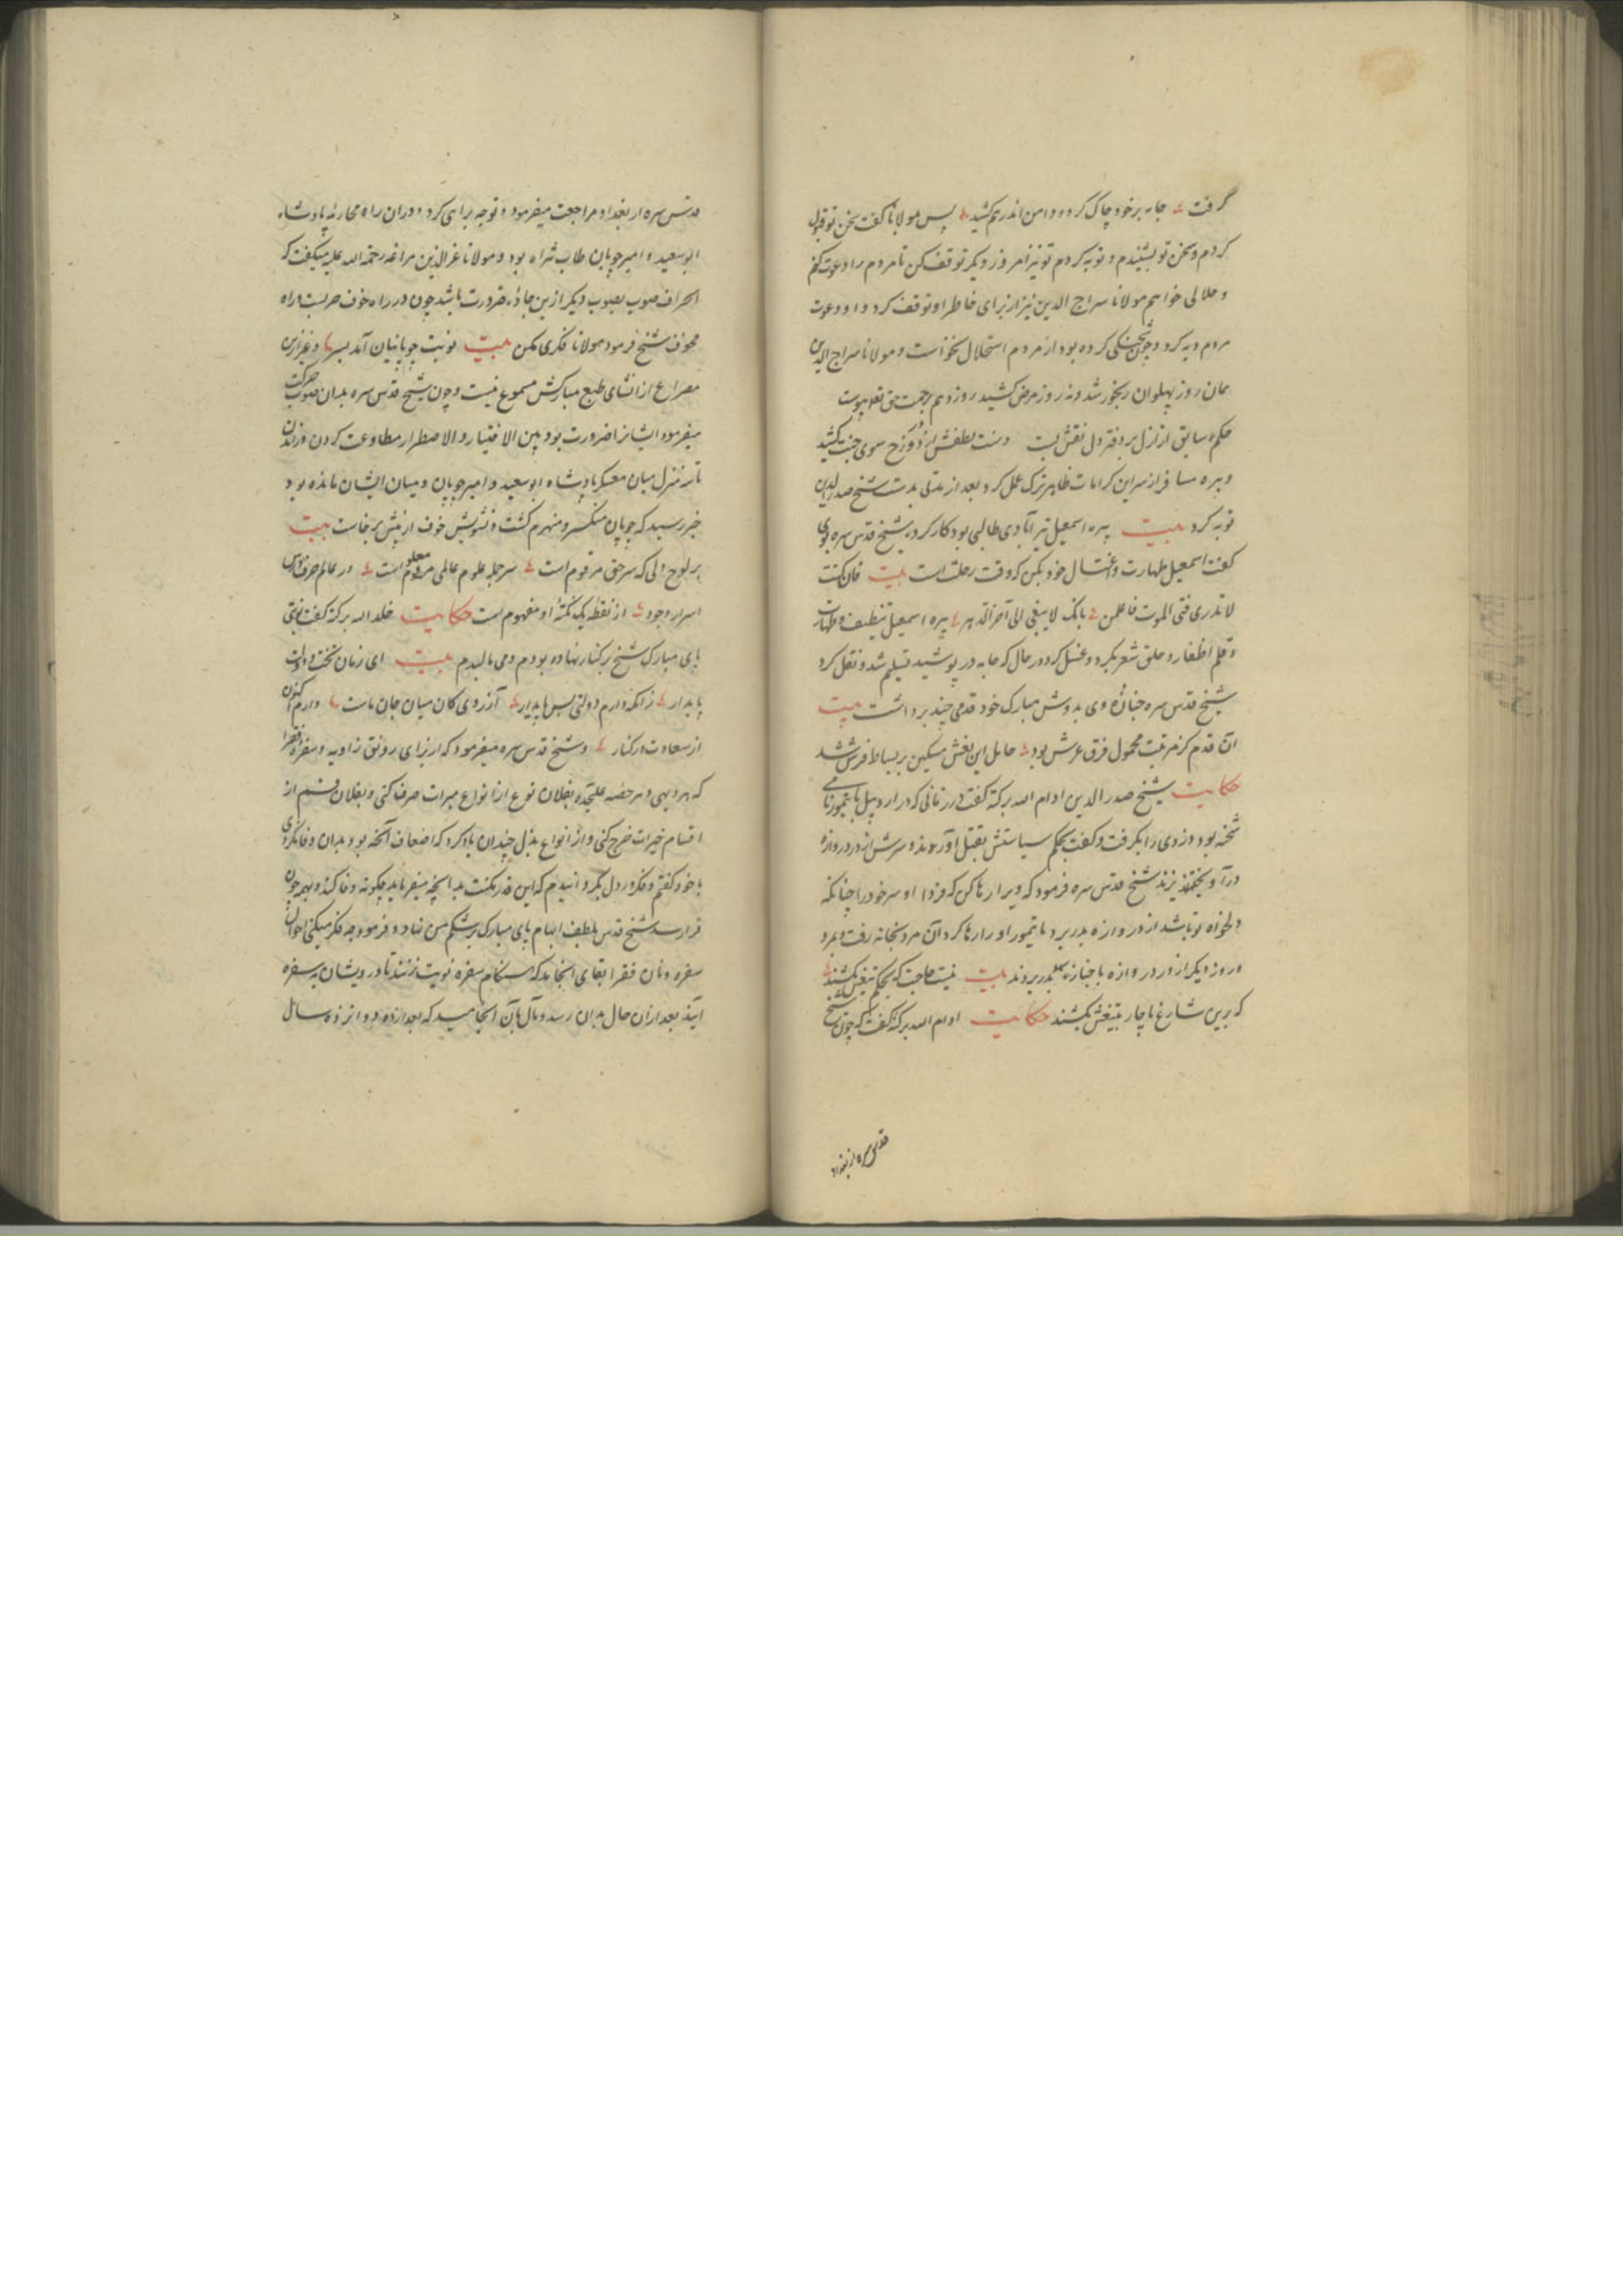 گرفت جامه بر خود چاک کرد و دامن اندر هم کشید پس مولانا گفت سخن تو قبول
کردم و سخن تو بشنیدم و توبه کردم تو نیز امروز دیگر توقف کن تا مردم را دعوت کنم
و حلالی خواهم مولانا سراج الدین نیز از برای خاطر او توقف کرد و او دعوت
مردم دیه کرد و چون شحنکی کرده بود از مردم استحلال بخواست و مولانا سراج الدین
همان روز پهلوان رنجور شد و نه روز مرض کشید روز دهم برحمت حق تعالی پیوست
حکم سابق از ازل بر دفتر دل نقش بست دست لطفش از دوزخ سوی جنت کشید
و پیره مسافر از سر این کرامات ظاهر ترک عمل کرد و بعد از مدتی بدست شیخ صدر الدین
توبه کرد بیت پیره اسمعیل تیرآبادی طالبی بود کار کرده شیخ قدس سره بوی
گفت اسمعیل طهارت و اغتسال خود بکن که وقت رحلت است بیت فان کنت
لا تدری متی الموت فاعلمن بانک لا یبقی الی آخر الدهر پیره اسمعیل تنظیف و طهارت
و قلم اظفار و حلق شعر بکرد و غسل کرد و در حال که جامه در پوشید تسلیم شد و نقل کرد
شیخ قدس سره جنازه وی بدوش مبارک خود قدمی چند برداشت بیت
آن قدم کز مرتبت محمول فرق عرش بود حامل این نعش مسکین بر بساط فرش شد
حکایت شیخ صدر الدین ادام الله برکته گفت در زمانی که در اردبیل بایتمور نامی
شحنه بود دزدی را بگرفت و گفت بحکم سیاستش بقتل آورند و سرش از در دروازه
درآویختند شیخ قدس سره فرمود که ویرا رها کن که فردا او سر خود را چنانکه
دلخواه تو باشد از دروازه بدر برد بایتمور او را رها کرد آن مرد بخانه رفت و بمرد
و روز دیگر از در دروازه با جنازه بدر بردند بیت نیست حاجت که بحکم تیغش بکشند
که برین شارع ناچار بتیغش بکشند حکایت ادام الله برکته گفت که چون شیخ
قدس سره از بغداد
قدس سره از بغداد مراجعت میفرمود و توجه براهی کرد و در آن راه محاربه پادشاه
ابو سعید و امیر چوپان طاب ثراه بود و مولانا عز الدین مراغه رحمة الله علیه میگفت که
انحراف صوب بصوب دیگر ازین جاده ضرورت باشد چون در راه خوف حربست و راه
مخوف شیخ فرمود مولانا فکری مکن بیت نوبت چوپانیان آمد بسر و غیر ازین
مصراع از انشای طبع مبارکش مسموع نیست و چون شیخ قدس سره بدان صوب حرکت
میفرمود ایشانرا ضرورت بود بین الاختیار و الاضطرار مطاوعت کردن
تا سه منزل میان معسکر پادشاه ابو سعید و امیر چوپان و میان ایشان مانده بود
خبر رسید که چوپان منکسر و منهزم گشت و تشویش خوف از پیش برخاست بیت
بر لوح دلی که سر حق مرقوم است سر جمله علوم عالمی معلوم است در عالم حرف درس
اسرار وجود از نقطه یک نکته او مفهوم است حکایت خلد الله برکته گفت نوبتی
پای مبارک شیخ بر کنار نهاده بودم و می مالیدم بیت ای زمان تخت دولت
پایدار زانکه دارم دولتی بس پایدار آرزوی کان میان جان ماست دارم اکنون
از سعادت در کنار و شیخ قدس سره میفرمود که از برای رونق زاویه و سفره فقرا
که هر دیهی و هر حصه علیحده بفلان نوع از انواع مبرات صرف کنی و بفلان قسم از
اقسام خیرات خرج کنی و از انواع بذل چندان یاد کرد که اضعاف آنچه بود بدان وفا نکردی
با خود گفتم و فکر در دل بگردانیدم که این قدر مکنت بدانچه میفرماید چگونه وفا کند و بهمه چون
فرا رسد شیخ قدس بلطف الهام پای مبارک بر شکم من نهاد و فرمود چه فکر میکنی احوال
سفره و نان فقرا بجای انجامد که هنگام سفره نوبت زنند تا درویشان به سفره
آیند بعد از آن حال بدان رسد و مآل بآن انجامید که بعد از ده دوازده سال